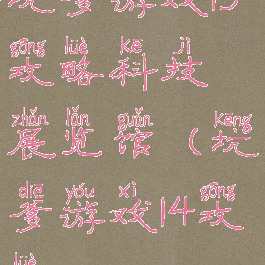 坑爹游戏15
gōng lüè kē jì
攻略科技
zhǎn lǎn guǎn kēng
展览馆（坑
diē yóu xì gōng
爹游戏14攻
lüè